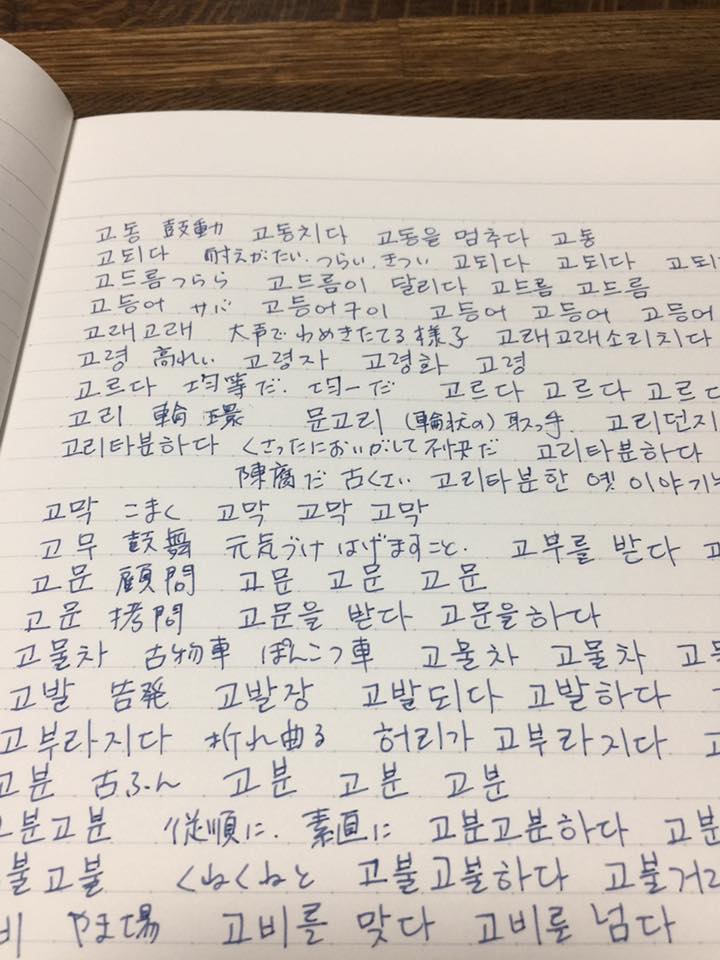 고동 鼓動 고동치다 고동을 멈추다 고동
고되다 耐えがたい、つらい、きつい 고되다 고되다 고되
고드름 つらら 고드름이 달리다 고드름 고드름
고등어 サバ 고등어구이 고등어 고등어 고등어
고래고래 大声でわめきたてる様子 고래고래소리치다
고령 高れい 고령자 고령화 고령
고르다 均等だ、均一だ 고르다 고르다 고르다
고리 輪 環 문고리 (輪状の)取っ手 고리던지
고리타분하다 くさったにおいがして不快だ 고리타분하다
陳腐だ 古くさい 고리타분한 옛이야기
고막 こまく 고막 고막 고막
고무 鼓舞 元気づけ はげますこと. 고무를 받다 고
고문 顧問 고문 고문 고문
고문 拷問 고문을 받다 고문을하다
고물차 古物車 ぽんこつ車 고물차 고물차 고물
고발 告発 고발장 고발되다 고발하다
고부라지다 折れ曲る 허리가 고부라지다 고
고분 古ふん 고분 고분 고분
고분고분 従順に、素直に 고분고분하다 고분
불고불 くねくねと 고불고불하다 고불거리
비 やま場 고비를 맞다 고비를 넘다